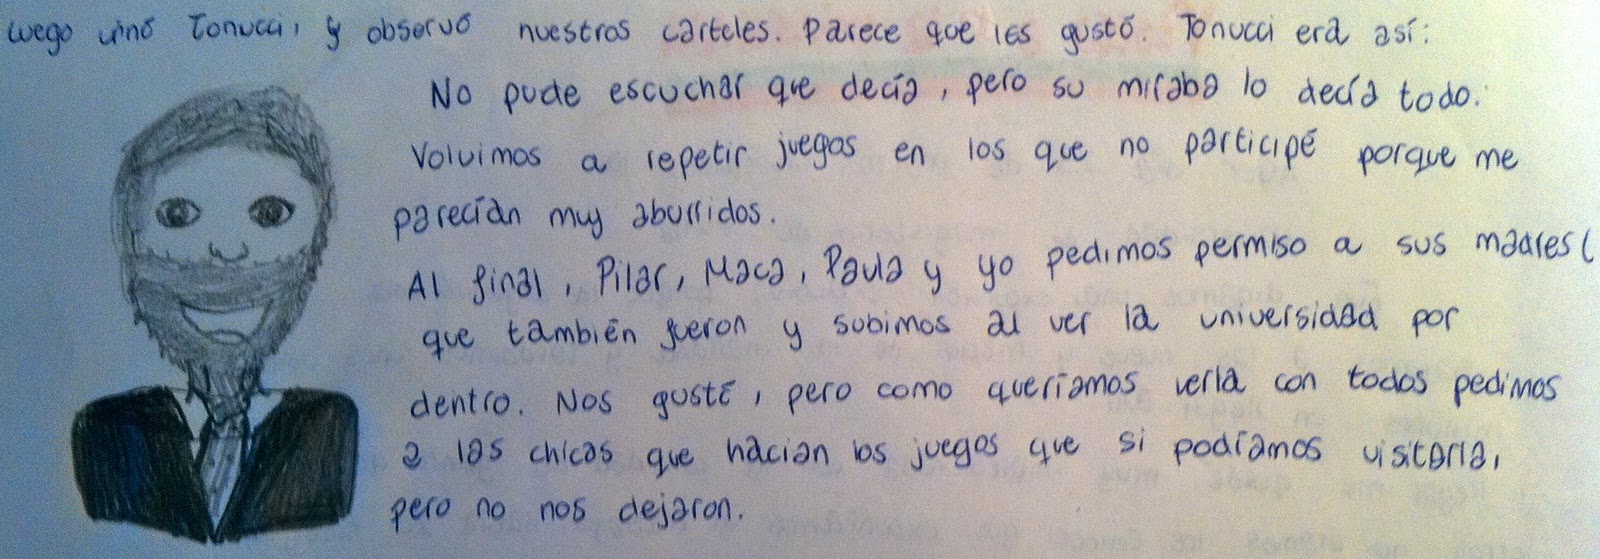 luego vino Tonucci, y observó nuestros carteles. Parece que les gustó. Tonucci era así:
No pude escuchar que decía, pero su miraba lo decía todo.
Volvimos a repetir juegos en los que no participé porque me
parecían muy aburridos.
Al final, Pilar, Maca, Paula y yo pedimos permiso a sus madres (
que también fueron y subimos al ver la universidad por
dentro. Nos gustó, pero como queríamos verla con todos pedimos
a las chicas que hacían los juegos que si podíamos visitarla,
pero no nos dejaron.